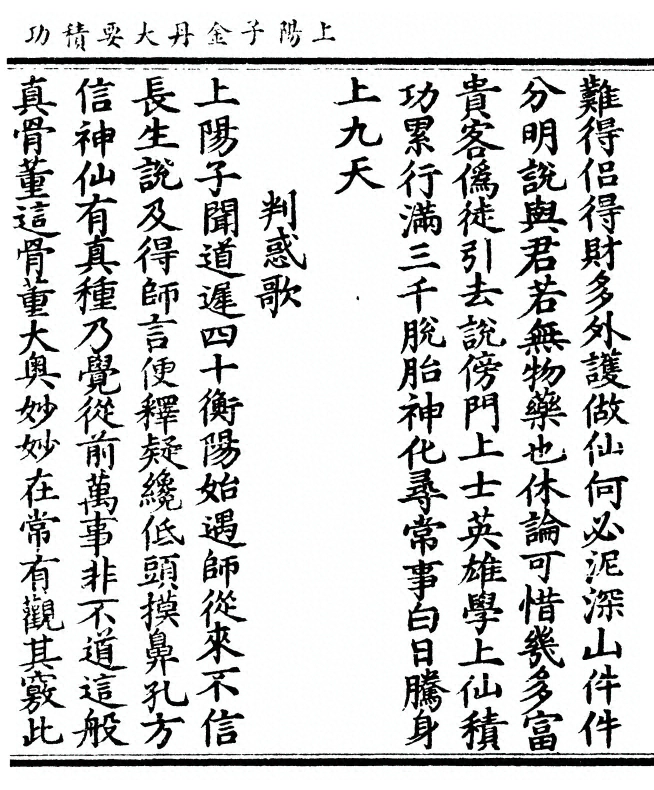 上陽子金丹大要積功
難得侶得財多外護做仙何必泥深山件件
分明說與君若無物藥也休論可惜幾多富
貴客偽徒引去說傍門上士英雄學上仙積
功累行滿三千脫胎神化尋常事白日騰身
上九天
判惑歌
上陽子聞道遲四十衡陽始遇師從來不信
長生說及得師言便釋疑纔低頭摸鼻孔方
信神仙有真種乃覺從前萬事非不道這般
真骨董這骨董大奥妙妙在常有觀其竅此